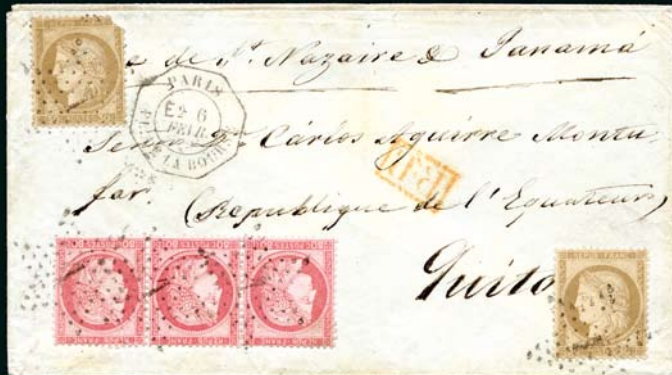 de St. Nazaire & Panamá
PARIS
E2 6
FEVR.
PL. DE LA BOURSE
Señor Dn. Cárlos Aguirre Montu-
far.
P.D.
(Republique de l'Equateur)
Quito
REPUB. FRANC.